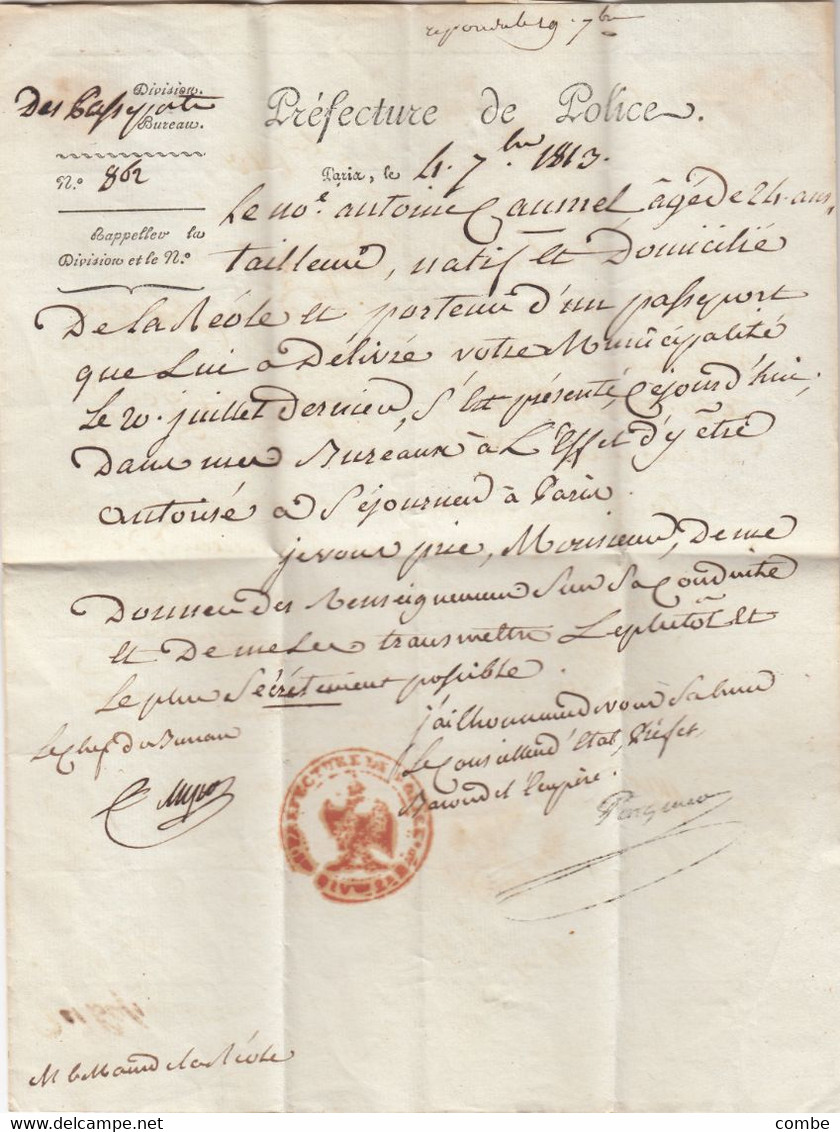 repondu le 19. 7bre
Division.
Des Passeports
Bureau.
Préfecture de Police.
N.º 862
Paris, le 4. 7bre 1813.
Rappeller la
Division et le N.º
Le no.é antoine Caumel âgé de 24. ans,
tailleur, natif et Domicilié
De la Réole et porteur d'un passeport
que Lui a Délivré votre Municipalité
Le 20. juillet dernier, S'est présenté, Cejourd'hui,
Dans mes Bureaux à L'Effet d'y être
autorisé a Séjourner à Paris.
je vous prie, Monsieur, De me
Donner des Renseignemens Sur Sa Conduite
et De me Les transmettre Le plutôt et
Le plus Secrétement possible.
j'ai l'honneur de vous Saluer
Le Chef du Bureau
Le Conseiller d'Etat, Préfet,
Baron de l'Empire.
Pasquier
PREFECTURE DE POLICE
M le Maire de la Réole
DELCAMPE.NET
combe